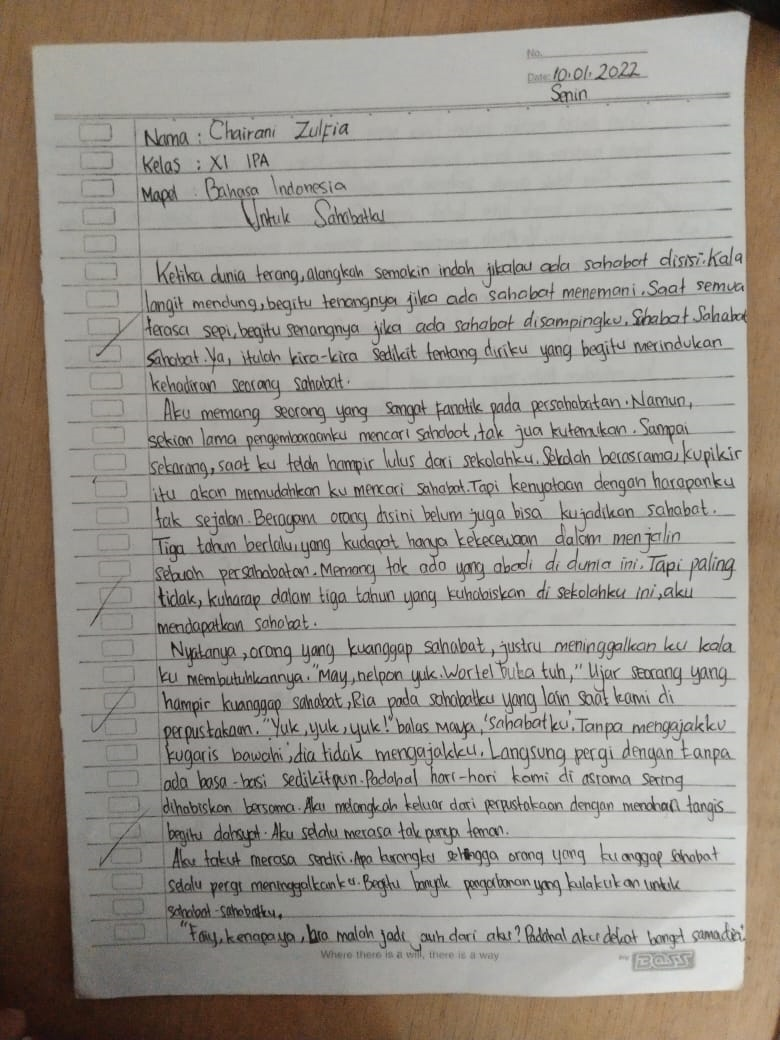 No.
Date: 10.01.2022
Senin
Nama : Chairani Zulfia
Kelas : XI IPA
Mapel : Bahasa Indonesia
Untuk Sahabatku
Ketika dunia terang, alangkah semakin indah jikalau ada sahabat disisi. Kala
langit mendung, begitu tenangnya jika ada sahabat menemani. Saat semua
terasa sepi, begitu senangnya jika ada sahabat disampingku. Shabat Sahabat
Sahabat. Ya, itulah kira-kira sedikit tentang diriku yang begitu merindukan
kehadiran seorang sahabat.
Aku memang seorang yang sangat fanatik pada persahabatan. Namun,
sekian lama pengembaraanku mencari sahabat, tak jua kutemukan. Sampai
sekarang, saat ku telah hampir lulus dari sekolahku. Sekolah berasrama, kupikir
itu akan memudahkan ku mencari sahabat. Tapi kenyataan dengan harapanku
tak sejalan. Beragam orang disini belum juga bisa kujadikan sahabat.
Tiga tahun berlalu, yang kudapat hanya kekecewaan dalam menjalin
sebuah persahabatan. Memang tak ada yang abadi di dunia ini. Tapi paling
tidak, kuharap dalam tiga tahun yang kuhabiskan di sekolahku ini, aku
mendapatkan sahabat.
Nyatanya, orang yang kuanggap sahabat, justru meninggalkan ku kala
ku membutuhkannya. "May, nelpon yuk. Wartel buka tuh," Ujar seorang yang
hampir kuanggap sahabat, Ria pada sahabatku yang lain saat kami di
perpustakaan. "Yuk, yuk, yuk!" balas Maya, 'sahabatku'. Tanpa mengajakku
kugaris bawahi, dia tidak mengajakku. Langsung pergi dengan tanpa
ada basa-basi sedikitpun. Padahal hari-hari kami di asrama sering
dihabiskan bersama. Aku melangkah keluar dari perpustakaan dengan menahan tangis
begitu dahsyat. Aku selalu merasa tak punya teman.
Aku takut merasa sendiri. Apa kurangku sehingga orang yang ku anggap sahabat
selalu pergi meninggalkanku. Begitu banyak pengorbanan yang kulakukan untuk
sahabat-sahabatku.
"Fay, kenapa ya, Lia malah jadi jauh dari aku? Padahal aku dekat banget sama dia."
Where there is a will, there is a way
BOSS